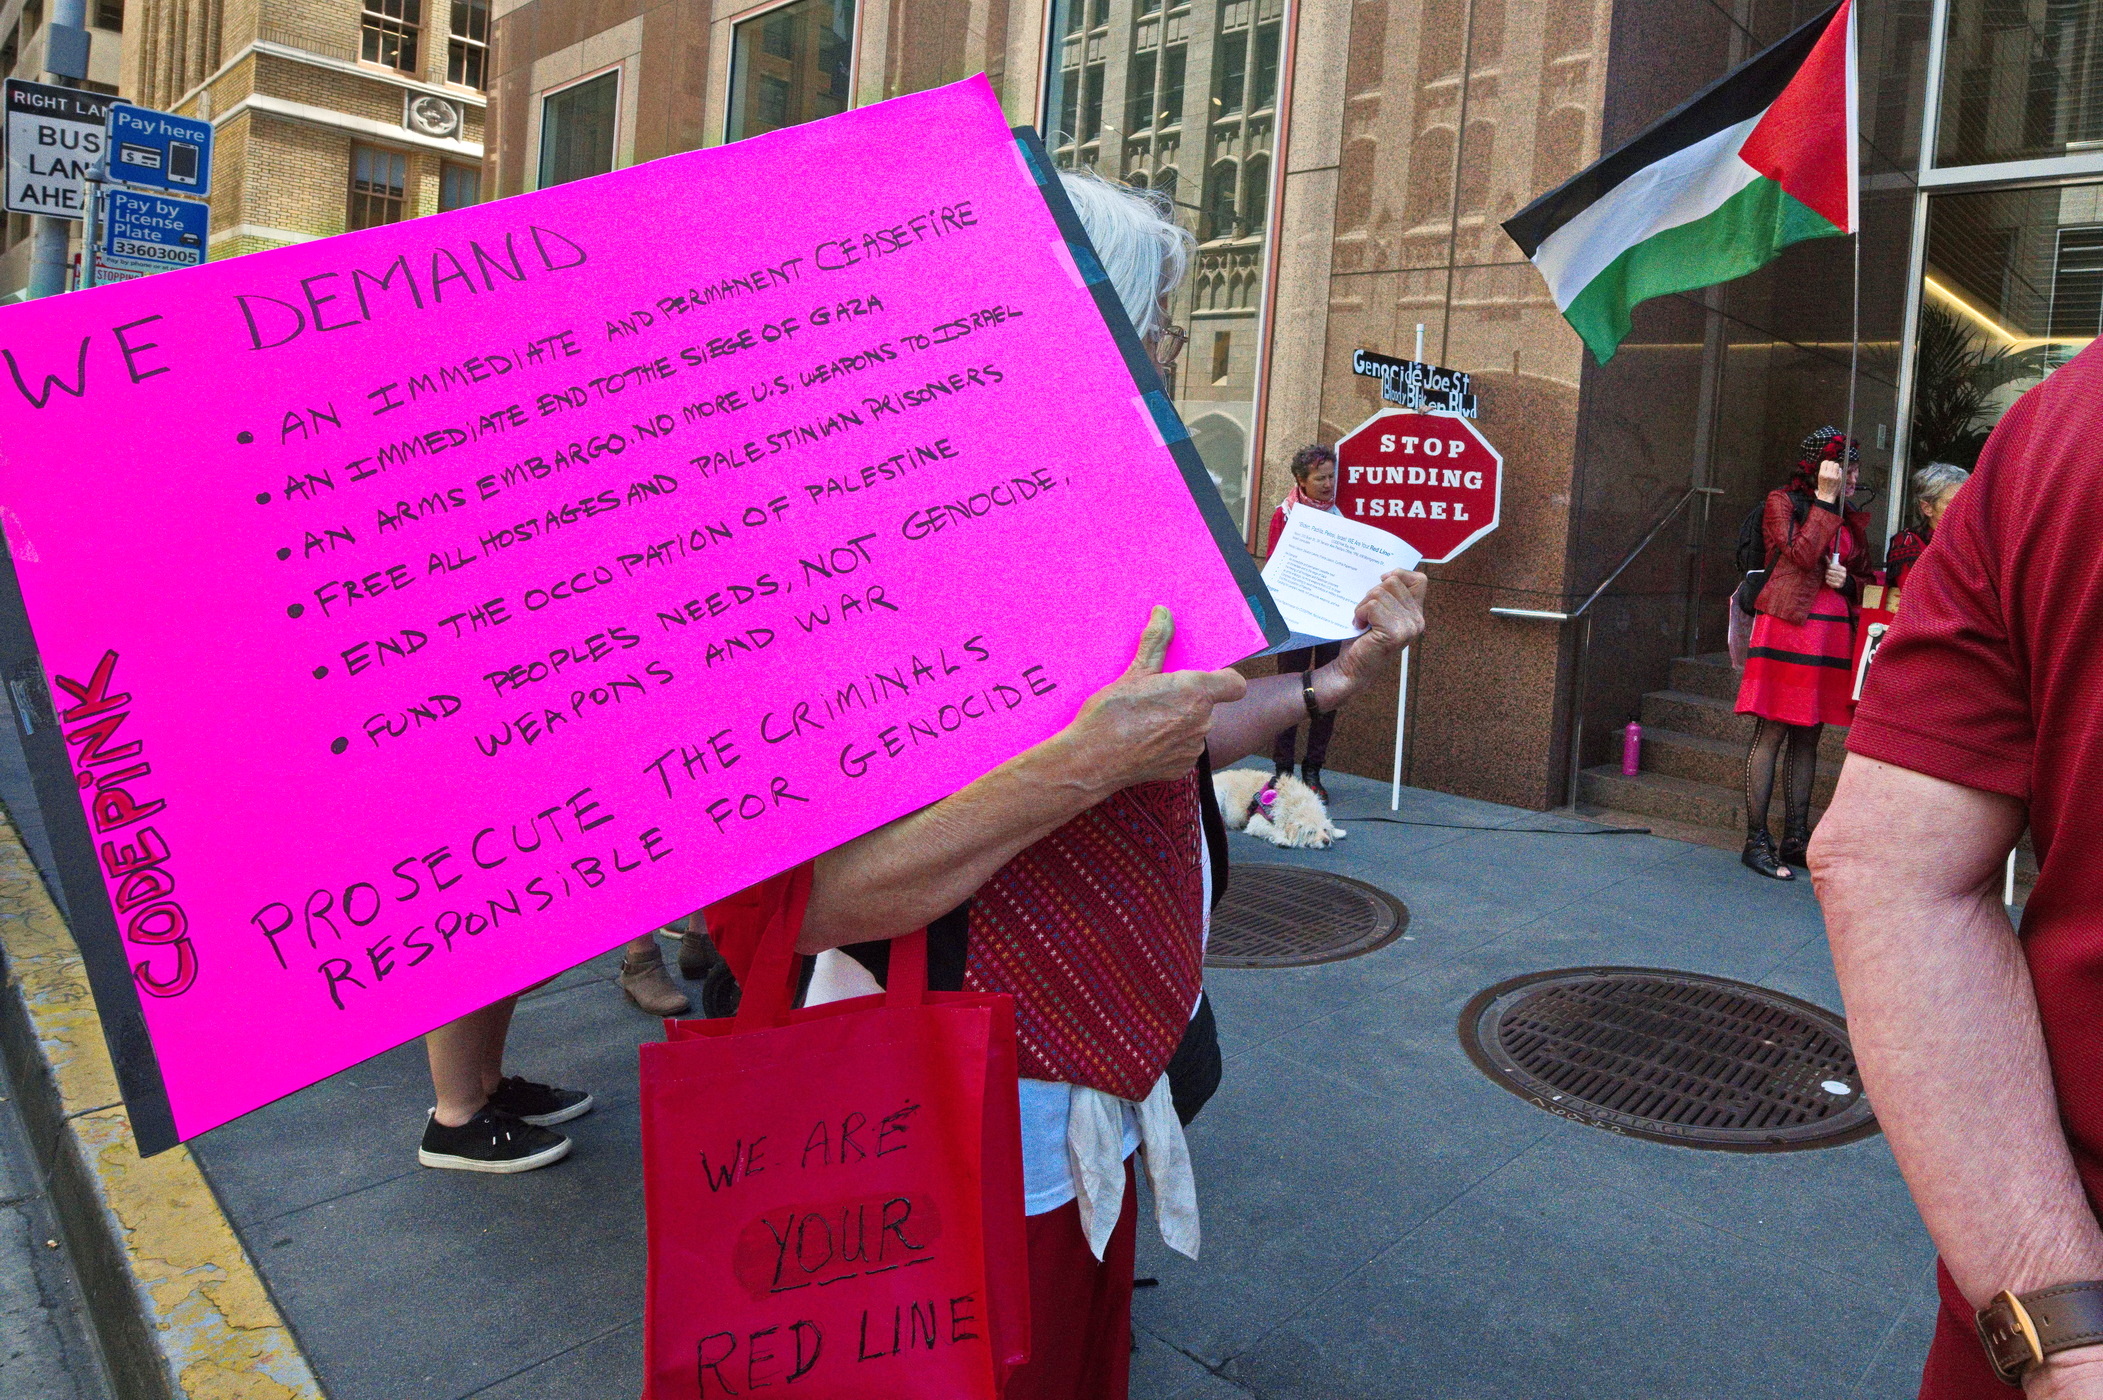 RIGHT LAN
BUS
LAN
AHEA
Pay here
$
Pay by
License
Plate
33603005
STOPPING
WE DEMAND
• AN IMMEDIATE AND PERMANENT CEASEFIRE
• AN IMMEDIATE END TO THE SIEGE OF GAZA
• AN ARMS EMBARGO. NO MORE U.S. WEAPONS TO ISRAEL
• FREE ALL HOSTAGES AND PALESTINIAN PRISONERS
• END THE OCCOPATION OF PALESTINE
• FUND PEOPLE'S NEEDS, NOT GENOCIDE,
WEAPONS AND WAR
PROSECUTE THE CRIMINALS
RESPONSIBLE FOR GENOCIDE
CODEPINK
WE ARE
YOUR
RED LINE
Genocide Joe St
Bloody Blinken Blvd
STOP
FUNDING
ISRAEL
WE Are Your Red Line"